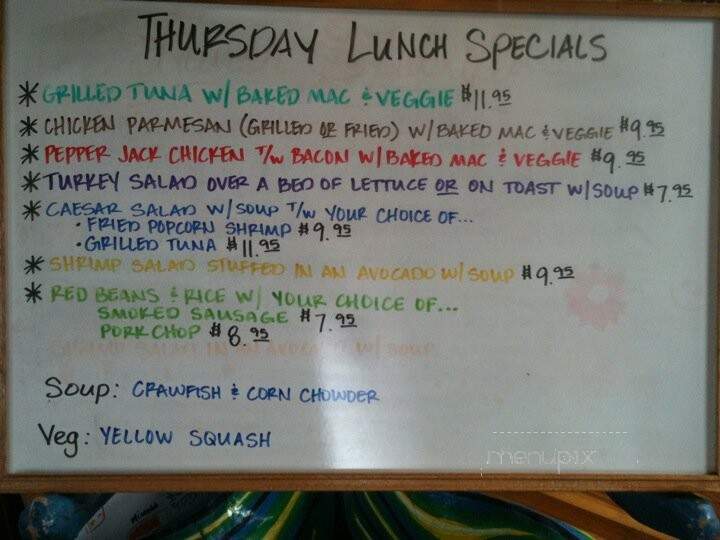 THURSDAY LUNCH SPECIALS
* GRILLED TUNA W/ BAKED MAC & VEGGIE $11.95
* CHICKEN PARMESAN (GRILLED OR FRIED) W/ BAKED MAC & VEGGIE $9.95
* PEPPER JACK CHICKEN T/W BACON W/ BAKED MAC & VEGGIE $9.95
* TURKEY SALAD OVER A BED OF LETTUCE OR ON TOAST W/ SOUP $7.95
* CAESAR SALAD W/ SOUP T/W YOUR CHOICE OF...
• FRIED POPCORN SHRIMP $9.95
• GRILLED TUNA $11.95
* SHRIMP SALAD STUFFED IN AN AVOCADO W/ SOUP $9.95
* RED BEANS & RICE W/ YOUR CHOICE OF...
SMOKED SAUSAGE $7.95
PORK CHOP $8.95
SHRIMP SALAD IN AN AVOCADO W/ SOUP
Soup: CRAWFISH & CORN CHOWDER
Veg: YELLOW SQUASH
menupix